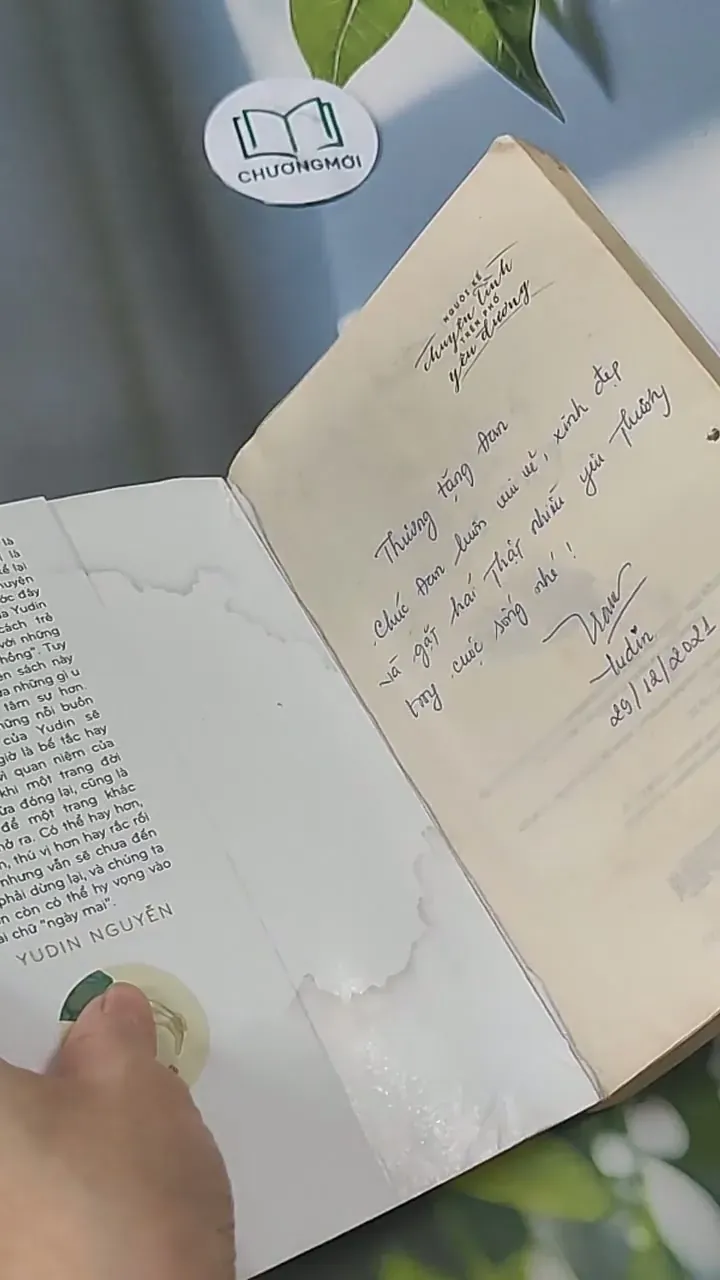 CHƯƠNGMỚI
NGƯỜI KỂ
chuyện tình
TRÊN PHỐ
yêu đương
Thương tặng Đan
Chúc Đan luôn vui vẻ, xinh đẹp
và gặt hái thật nhiều yêu thương
trong cuộc sống nhé!
Yudin
29/12/2021
là
là
kể lại
huyện
ớc đây
a Yudin
cách trẻ
với những
hông". Tuy
ên sách này
ưa những gì u
tâm sự hơn.
hững nỗi buồn
của Yudin sẽ
giờ là bế tắc hay
vì quan niệm của
khi một trang đời
ừa đóng lại, cũng là
để một trang khác
ở ra. Có thể hay hơn,
n, thú vị hơn hay rắc rối
nhưng vẫn sẽ chưa đến
phải dừng lại, và chúng ta
n còn có thể hy vọng vào
ai chữ "ngày mai".
YUDIN NGUYỄN